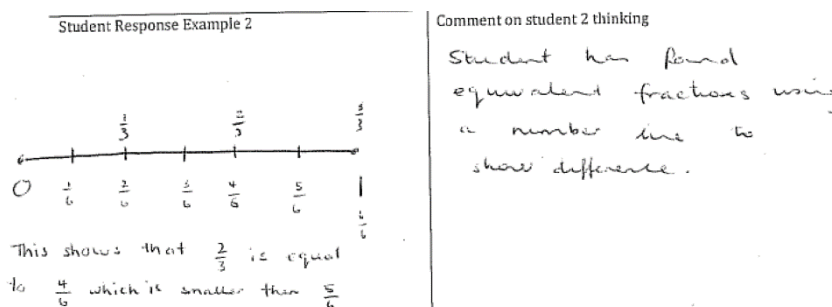 Student Response Example 2
1/3 2/3 3/3
0 1/6 2/6 3/6 4/6 5/6 1
6/6
This shows that 2/3 is equal
to 4/6 which is smaller than 5/6
Comment on student 2 thinking
Student has found
equivalent fractions using
a number line to
show difference.